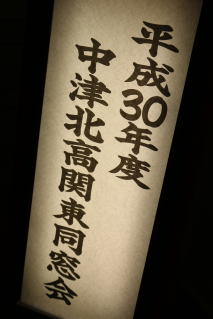 平成30年度
中津北高関東同窓会